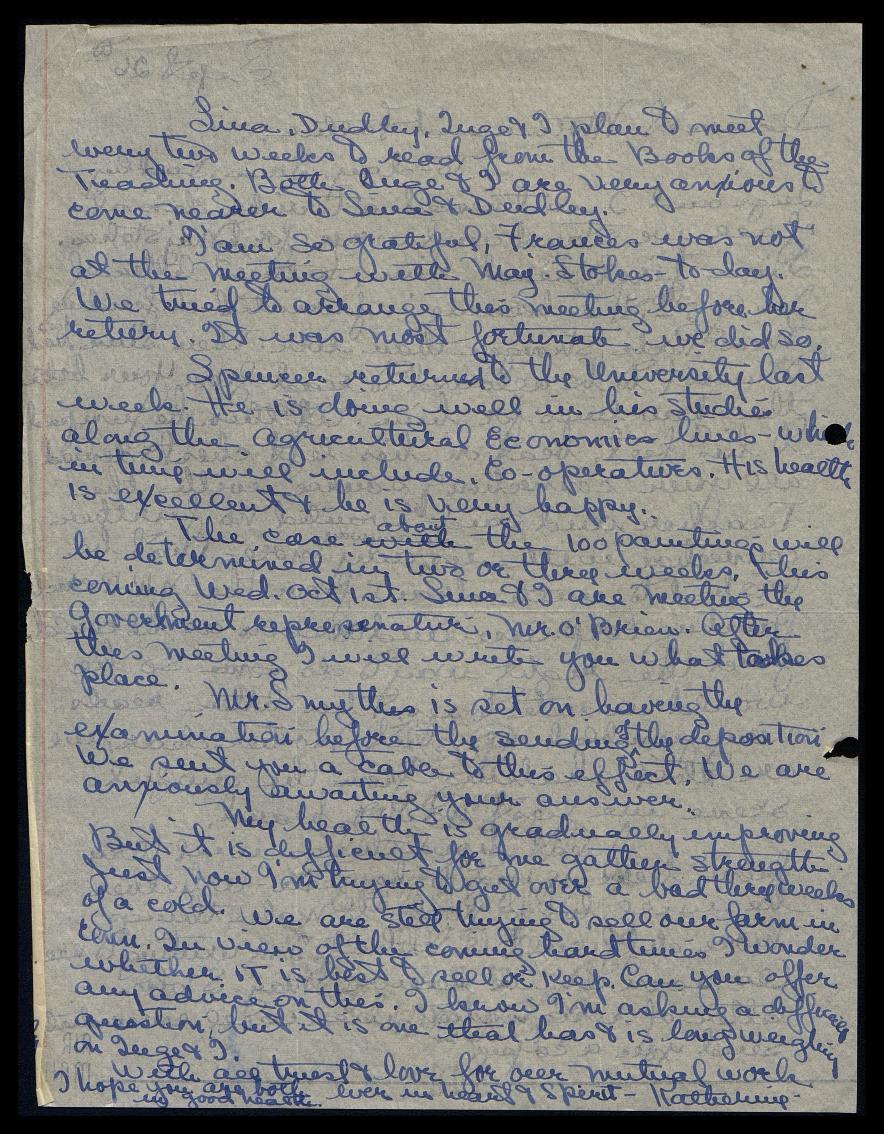 Sina, Dudley, Inge & I, plan to meet
every two weeks to read from the Books of the
Teaching. Both Inge & I are very anxious to
come nearer to Sina & Dudley.
I am so grateful, Frances was not
at the meeting with Maj. Stokes - to-day.
We tried to arrange this meeting before her
return. It was most fortunate we did so.
Spencer returned to the University last
week. He is doing well in his studies
along the Agricultural Economics lines - which
in time will include, Co-operatives. His health
is excellent & he is very happy.
about
The case with the 100 paintings will
be determined in two or three weeks. This
coming Wed. Oct 1st. Sina & I are meeting the
Government representative, Mr. O'Brien. After
this meeting I will write you what takes
place.
Mr. Smythes is set on having the
examination before the sending of the deposition
We sent you a cable to this effect. We are
anxiously awaiting your answer.
My health is gradually improving
But it is difficult for me gather strength.
Just now I'm trying to get over a bad three weeks
of a cold. We are still trying to sell our farm in
Conn. In view of the coming hard times I wonder
whether it is best to sell or keep. Can you offer
any advice on this. I know I'm asking a difficult
question, but it is one that has & is long weighing
on Inge & I.
With all trust & love for our mutual work
I hope you are both
in good health. ever in heart & spirit - Katherine -